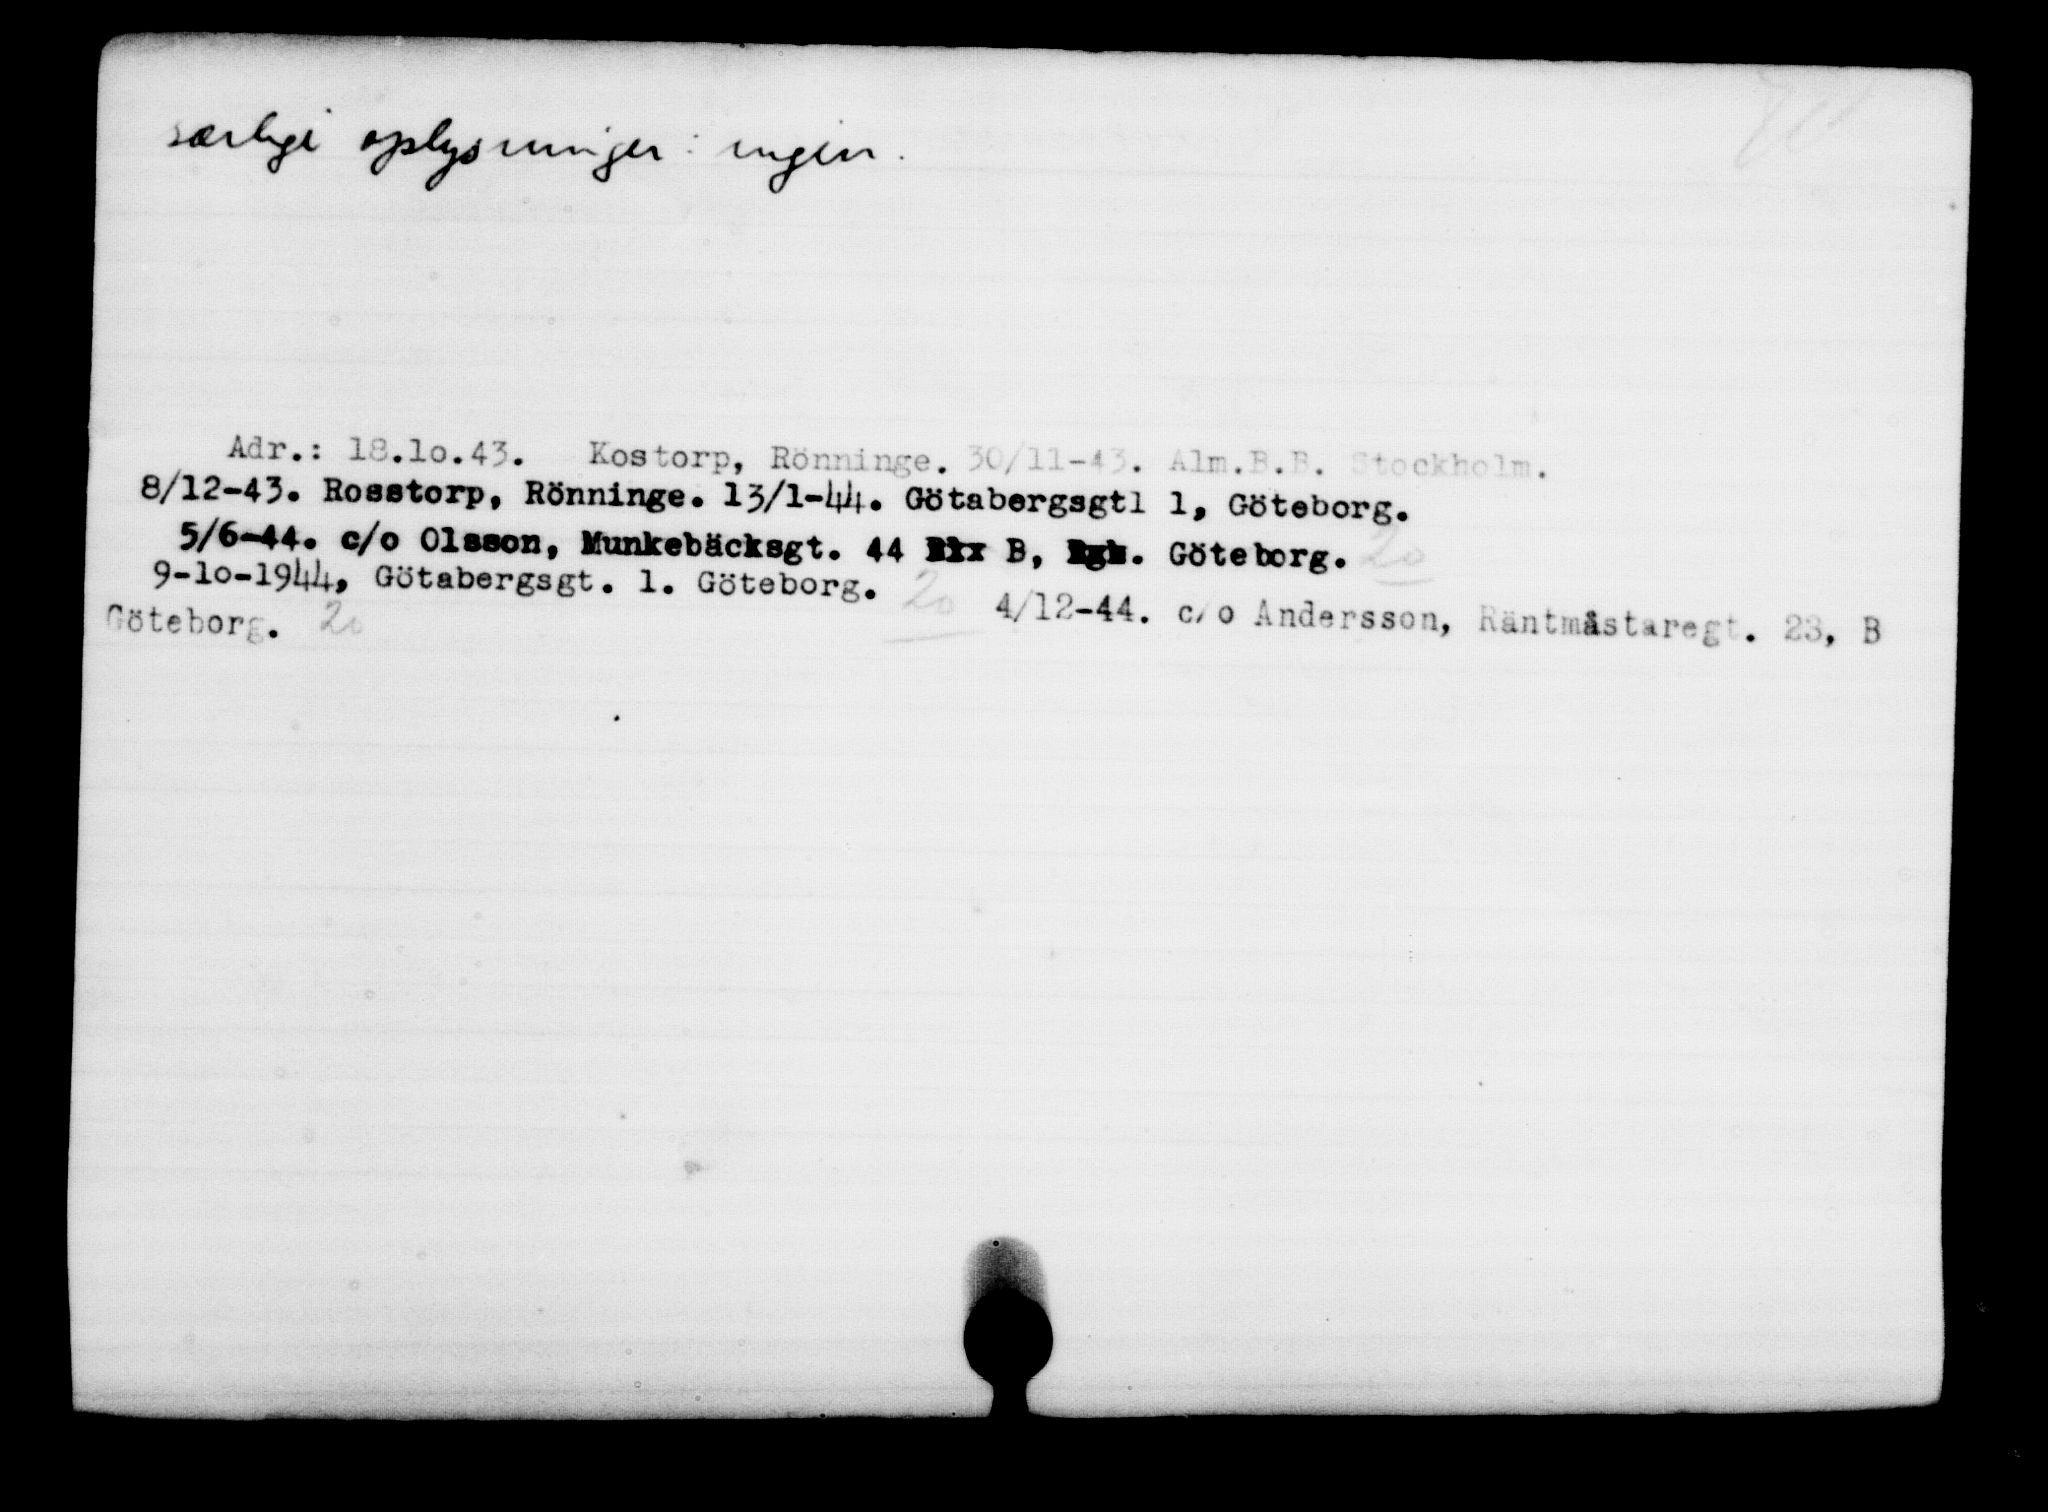 særlige oplysninger: ingen.
Adr.: 18.10.43. Kostorp, Rönninge. 30/11-43. Alm.B.B. Stockholm.
8/12-43. Rosstorp, Rönninge. 13/1-44. Götabergsgtl 1, Göteborg.
5/6-44. c/o Olsson, Munkebäcksgt. 44 B, Göteborg. 20
9-10-1944, Götabergsgt. 1. Göteborg. 20
4/12-44. c/o Andersson, Räntmåstaregt. 23, B
Göteborg. 20